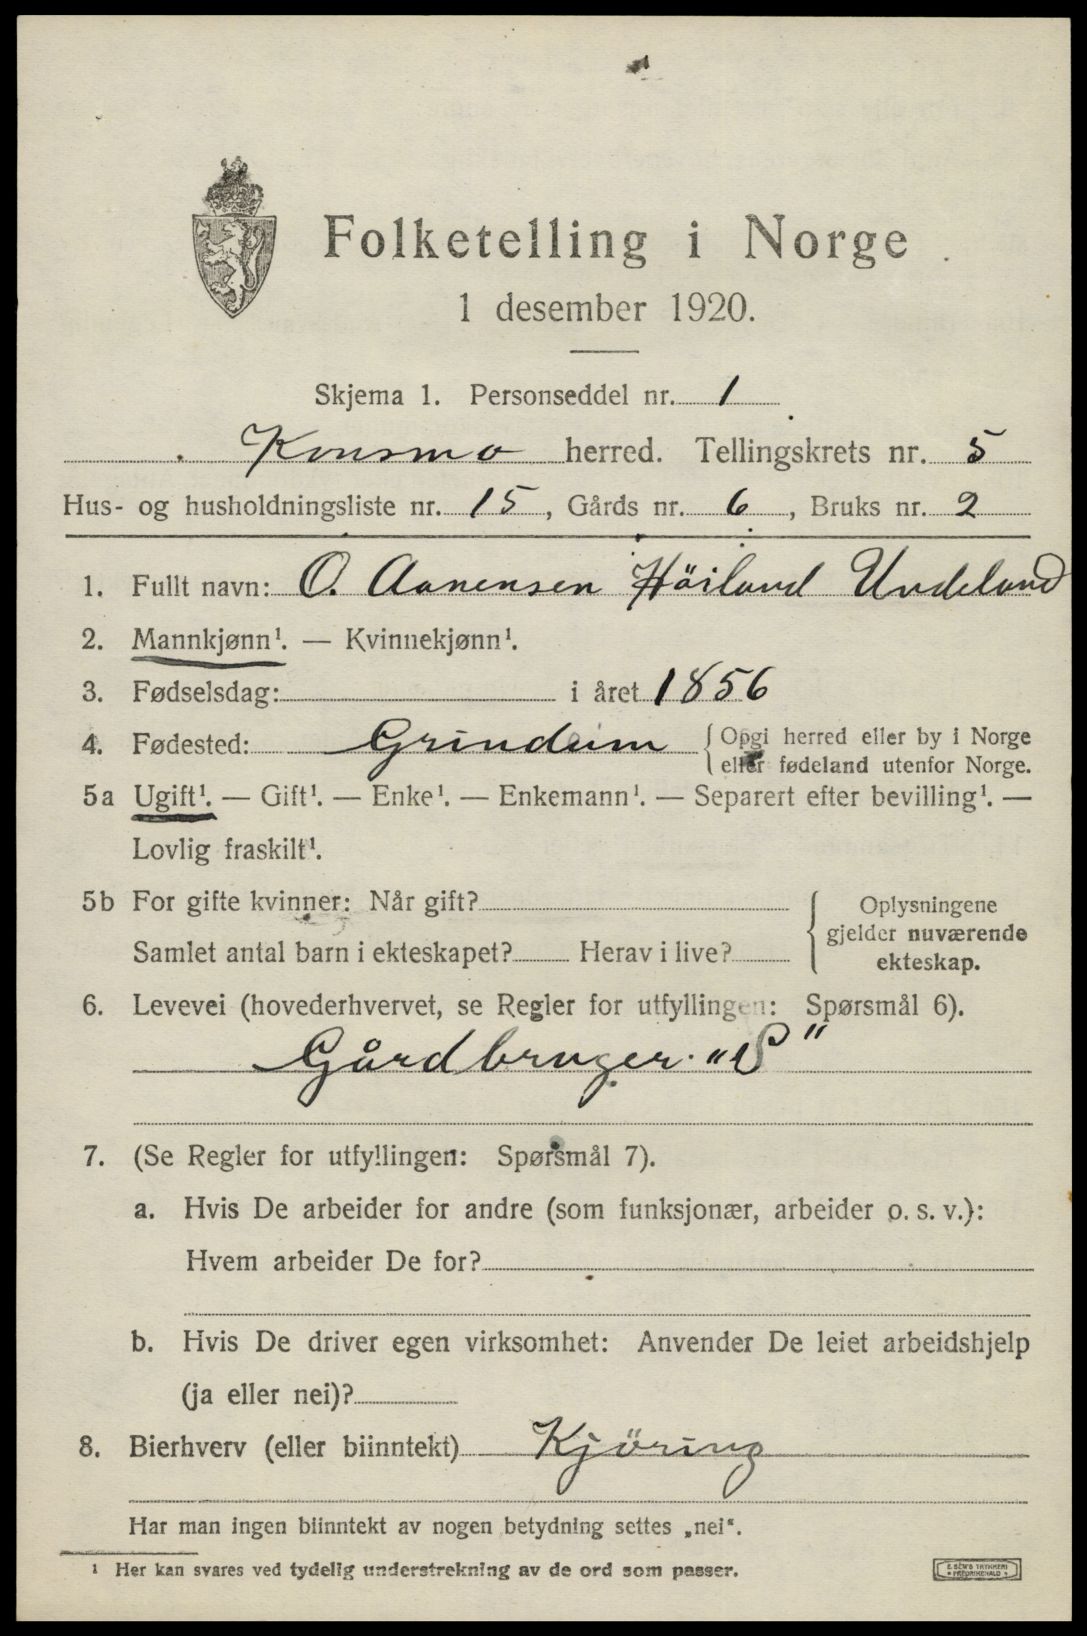 Folketelling i Norge
1 desember 1920.
Skjema 1. Personseddel nr. 1
Konsmo herred. Tellingskrets nr. 5
Hus- og husholdningsliste nr. 15, Gårds nr. 6, Bruks nr. 2
1. Fullt navn: O. Aanensen Höiland Undeland
2. Mannkjønn¹. — Kvinnekjønn¹.
3. Fødselsdag: i året 1856
4. Fødested: Grindeim { Opgi herred eller by i Norge
eller fødeland utenfor Norge.
5a Ugift¹. — Gift¹. — Enke¹. — Enkemann¹. — Separert efter bevilling¹. —
Lovlig fraskilt¹.
5b For gifte kvinner: Når gift?
Samlet antal barn i ekteskapet? Herav i live?
{ Oplysningene
gjelder nuværende
ekteskap.
6. Levevei (hovederhvervet, se Regler for utfyllingen: Spørsmål 6).
Gårdbruger. "S"
7. (Se Regler for utfyllingen: Spørsmål 7).
a. Hvis De arbeider for andre (som funksjonær, arbeider o. s. v.):
Hvem arbeider De for?
b. Hvis De driver egen virksomhet: Anvender De leiet arbeidshjelp
(ja eller nei)?
8. Bierhverv (eller biinntekt) Kjöring
Har man ingen biinntekt av nogen betydning settes „nei“.
¹ Her kan svares ved tydelig understrekning av de ord som passer.